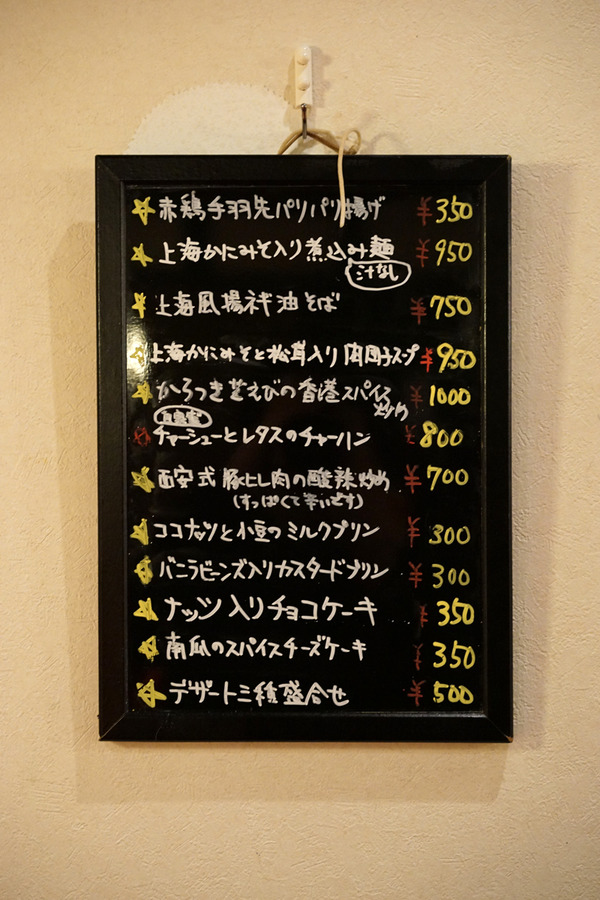 赤鶏手羽先パリパリ揚げ ¥350
上海かにみそ入り煮込み麺 ¥950
汁なし
上海風揚ネギ油そば ¥750
上海かにみそと松茸入り肉団子スープ ¥950
からつき芝えびの香港スパイス炒め ¥1000
自家製
チャーシューとレタスのチャーハン ¥800
西安式 豚ヒレ肉の酸辣炒め ¥700
(すっぱくて辛いです)
ココナッツと小豆のミルクプリン ¥300
バニラビーンズ入りカスタードプリン ¥300
ナッツ入りチョコケーキ ¥350
南瓜のスパイスチーズケーキ ¥350
デザート三種盛合せ ¥500